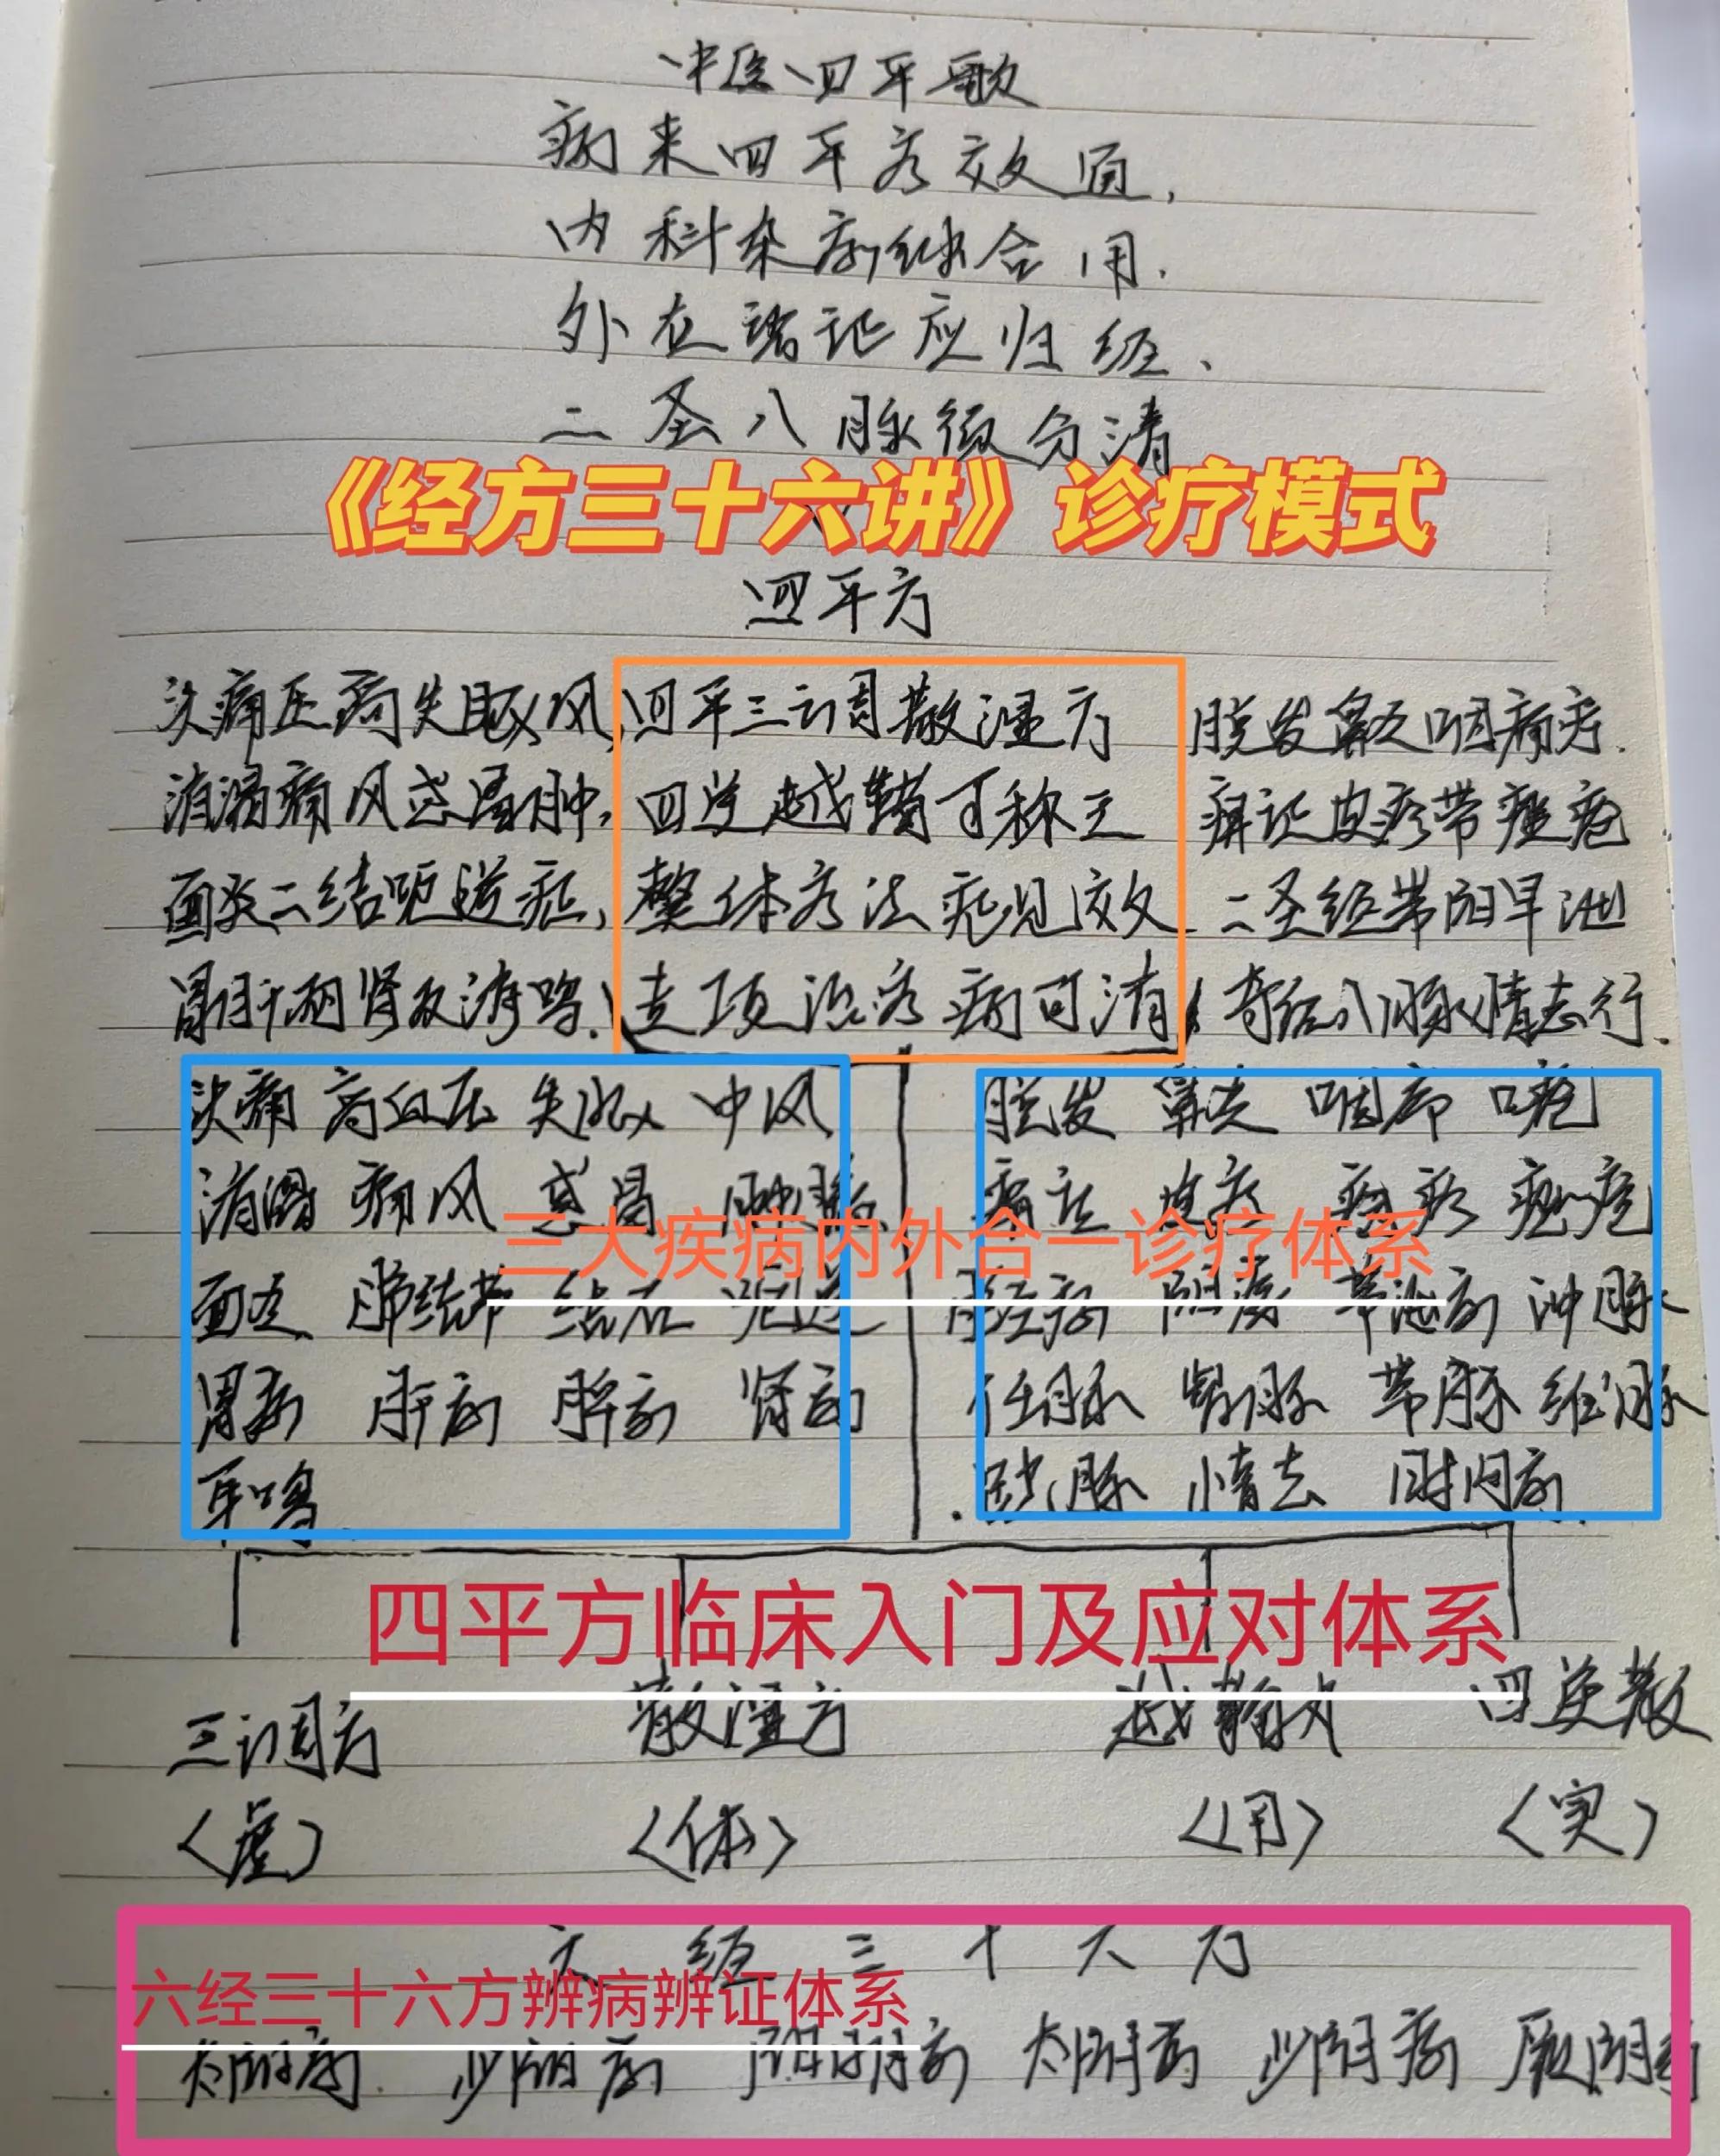 中医四平歌
病来四平疗效通，
内科杂病继合用.
外在诸证应归经、
二圣八脉须分清
《经方三十六讲》诊疗模式
四平方
头痛压高失眠风,
四平三调散湿方
脱发鼻炎咽痛方.
消渴痛风感冒肿,
四逆越鞠可称王
癣证皮疹带痤疮
面炎二结呃逆症,
整体疗法现见效
二圣经带阳早泄
胃肝两肾及消鸣.
专项治疗病可消
奇经八脉情志行.
头痛 高血压 失眠 中风
脱发 鼻炎 咽炎 口疮
消渴 痛风 感冒 肿胀
皮疹 痤疮
三大疾病内外合一诊疗体系
面炎 肺结节 结石 呃逆
月经病 阳痿 早泄病 冲脉
胃病 肝病 脾病 肾病
任脉 督脉 带脉 维脉
耳鸣
跷脉 情志 时间病
四平方临床入门及应对体系
三调方 散湿方 越鞠丸 四逆散
〈虚〉 〈体〉 〈用〉 〈实〉
六经三十六方
六经三十六方辨病辨证体系
太阳病 少阳病 阳明病 太阴病 少阴病 厥阴病